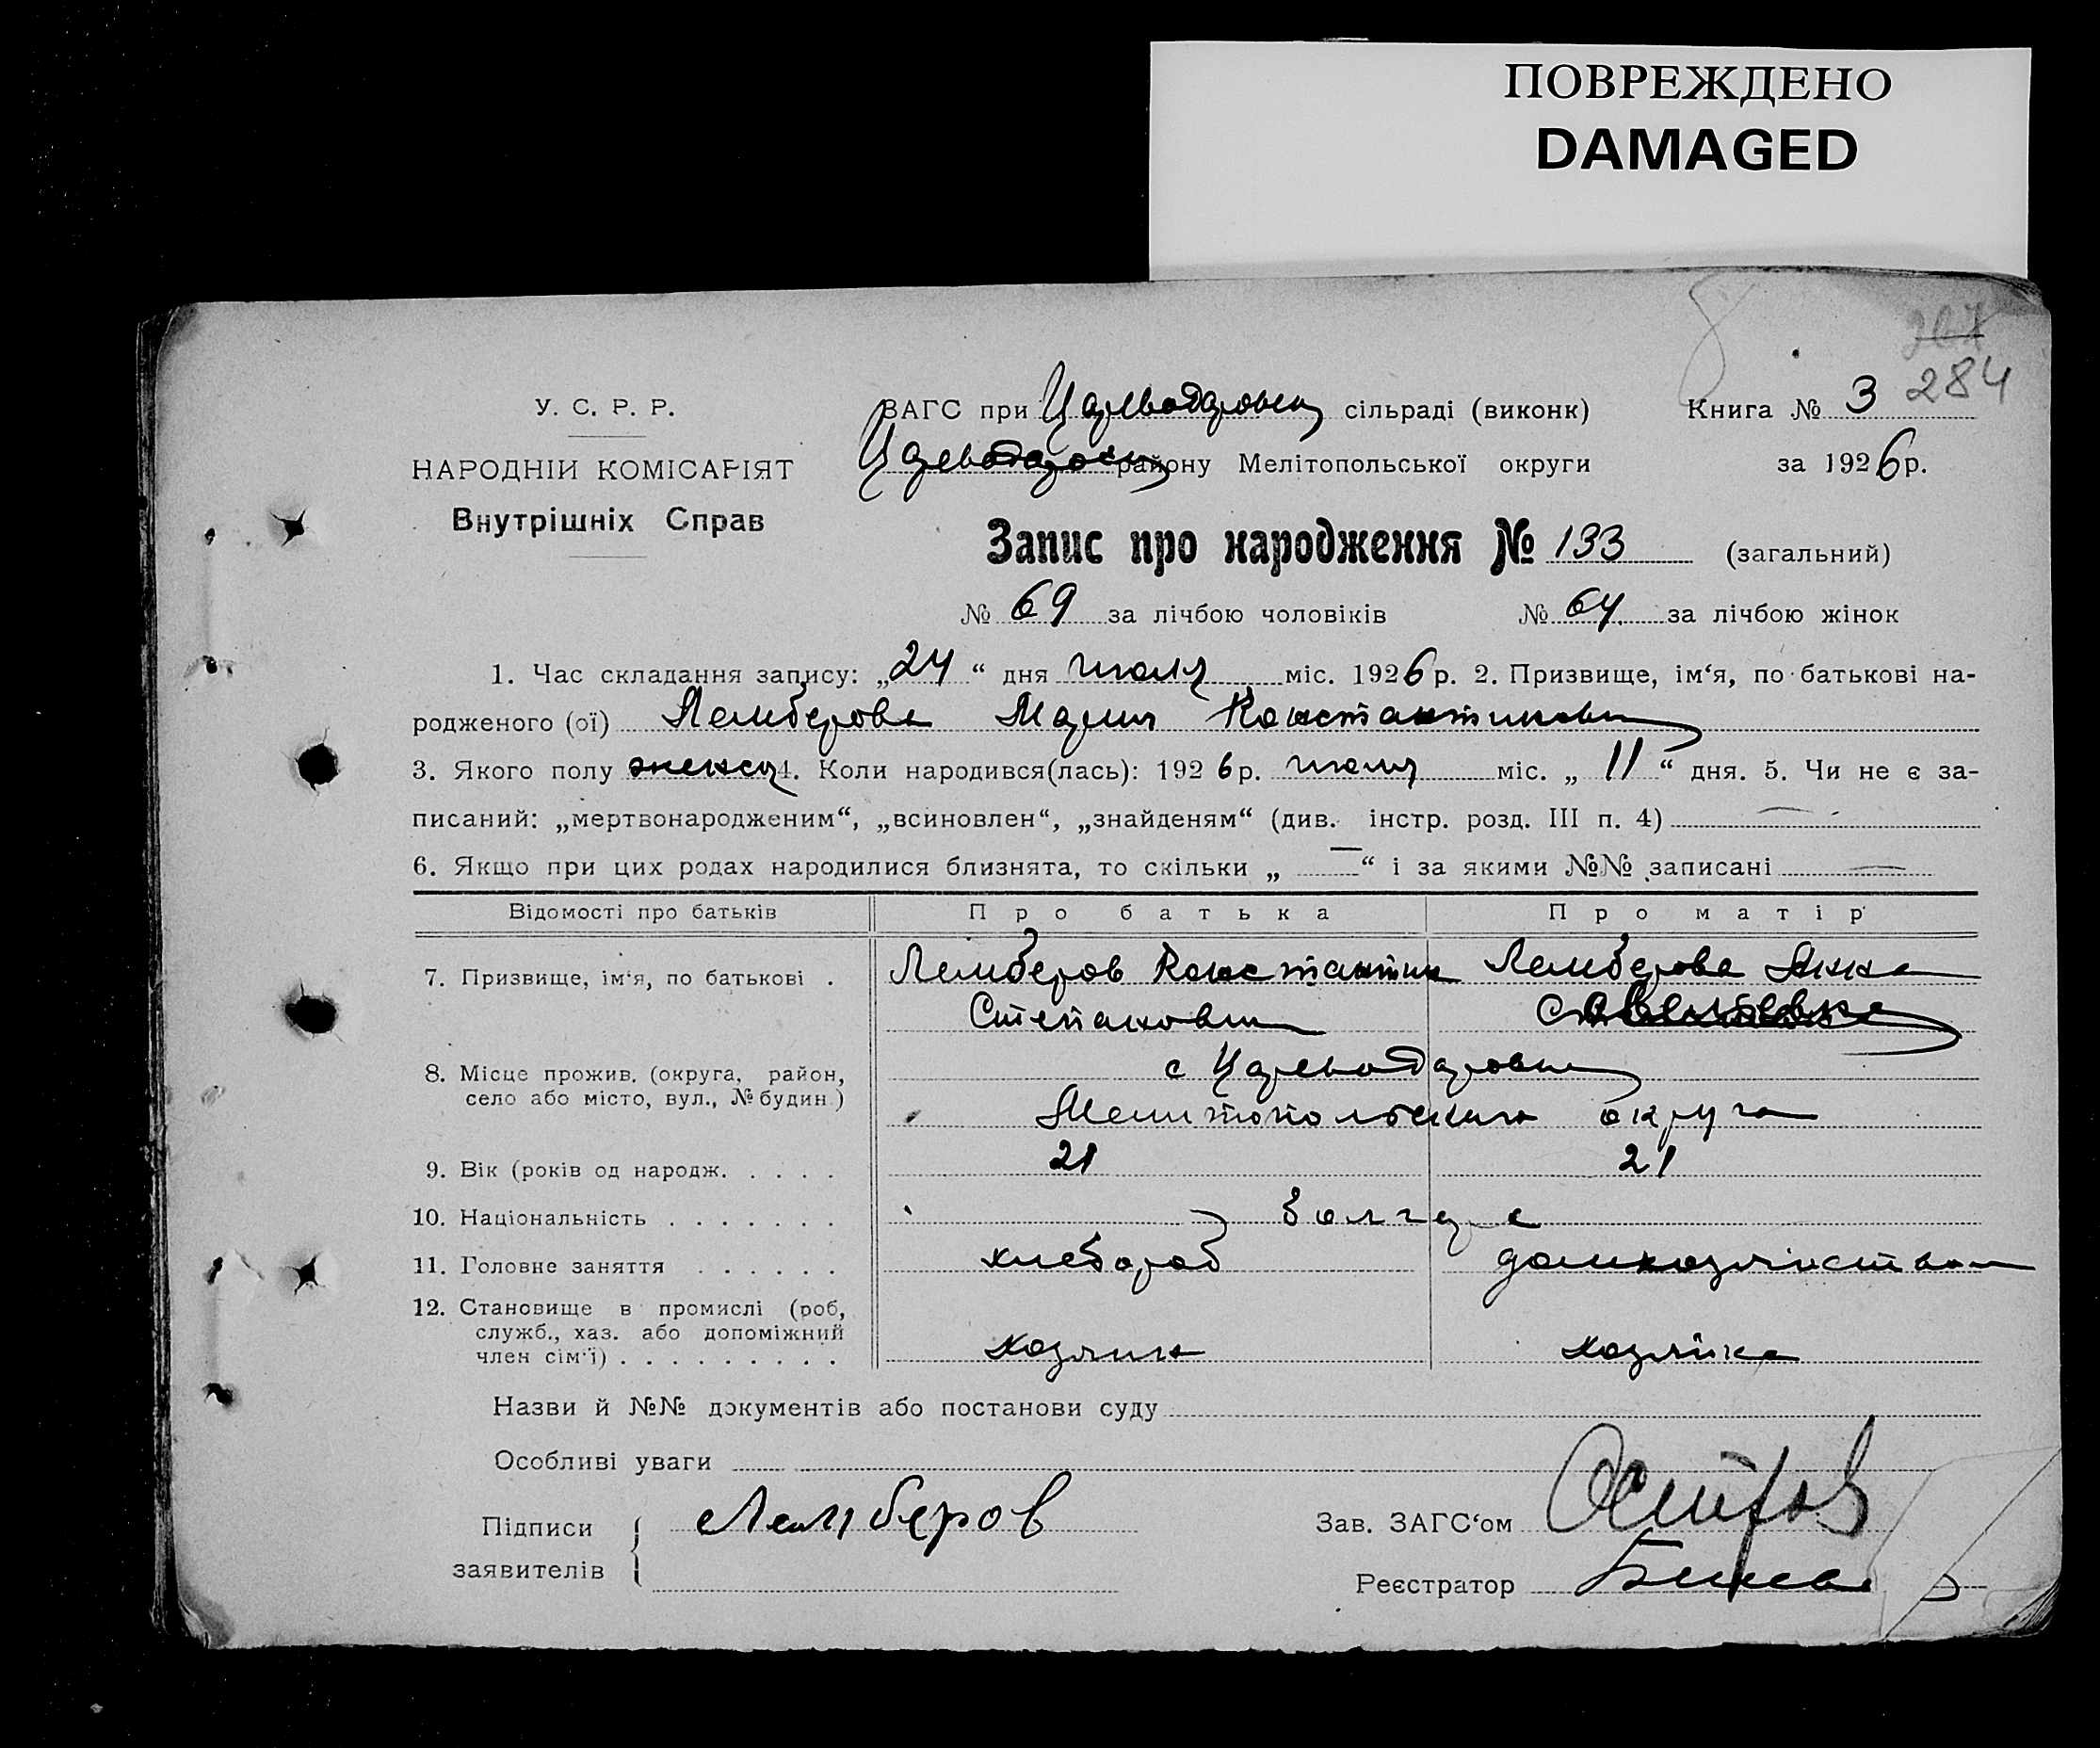 ПОВРЕЖДЕНО
DAMAGED
8
207
284
У. С. Р. Р.
НАРОДНІЙ КОМІСАРІЯТ
Внутрішніх Справ
ЗАГС при Цареводаровск сільраді (виконк)
Книга № 3
Цареводаровск району Мелітопольської округи
за 1926 р.
Запис про народження № 133 (загальний)
№ 69 за лічбою чоловіків № 64 за лічбою жінок
1. Час складання запису: „24“ дня июля міс. 1926 р. 2. Призвище, ім‘я, по батькові на-
родженого (ої) Лемберова Мария Константиновн
3. Якого полу женск 4. Коли народився(лась): 1926 р. июля міс. „11“ дня. 5. Чи не є за-
писаний: „мертвонародженим“, „всиновлен“, „знайденям“ (див. інстр. розд. III п. 4) —
6. Якщо при цих родах народилися близнята, то скільки „—“ і за якими №№ записані —
Відомості про батьків Про батька Про матір
7. Призвище, ім‘я, по батькові . Лемберов Константин Лемберова Анна
Степанович
8. Місце прожив. (округа, район,
село або місто, вул., № будин.)
с Цареводаровк
Мелитопольского округа
9. Вік (років од народж. . . . . 21 21
10. Національність . . . . . . . болгаре
11. Головне заняття . . . . . . хлебороб домхозяйством
12. Становище в промислі (роб,
служб., хаз. або допоміжний
член сім‘ї) . . . . . . . . . хозяин хозяйка
Назви й №№ документів або постанови суду
Особливі уваги
Підписи
заявителів
Лемберов
Зав. ЗАГС‘ом
Реєстратор